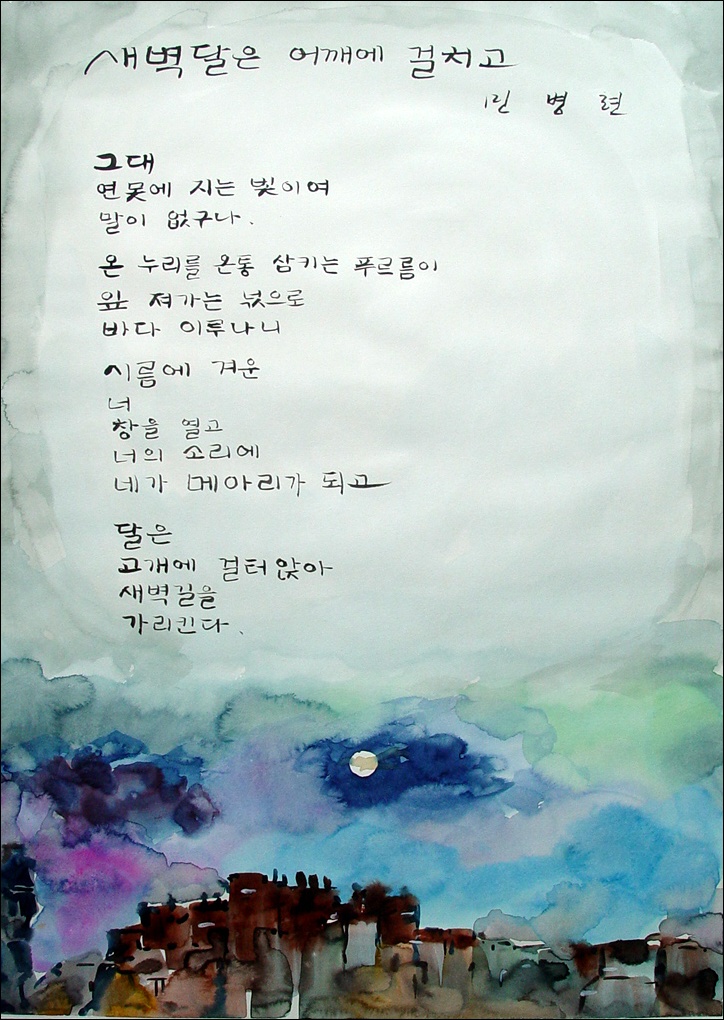 새벽달은 어깨에 걸치고
민 병 련
그대
연못에 지는 빛이여
말이 없구나.
온 누리를 온통 삼키는 푸르름이
잎 져가는 넋으로
바다 이루나니
시름에 겨운
너
창을 열고
너의 소리에
네가 메아리가 되고
달은
고개에 걸터앉아
새벽길을
가리킨다.